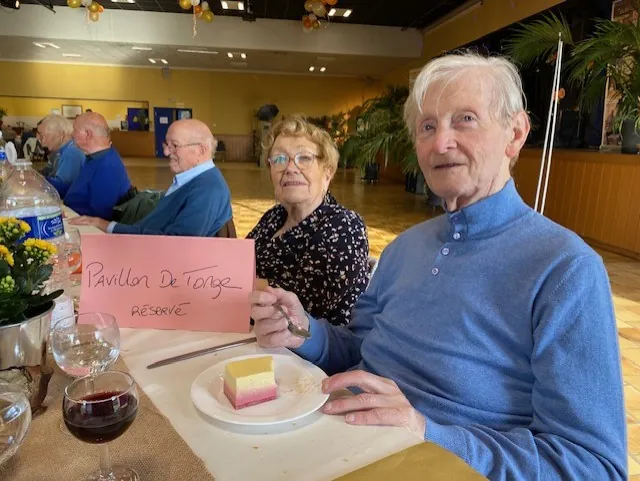 Pavillon De Tonge
RÉSERVÉ